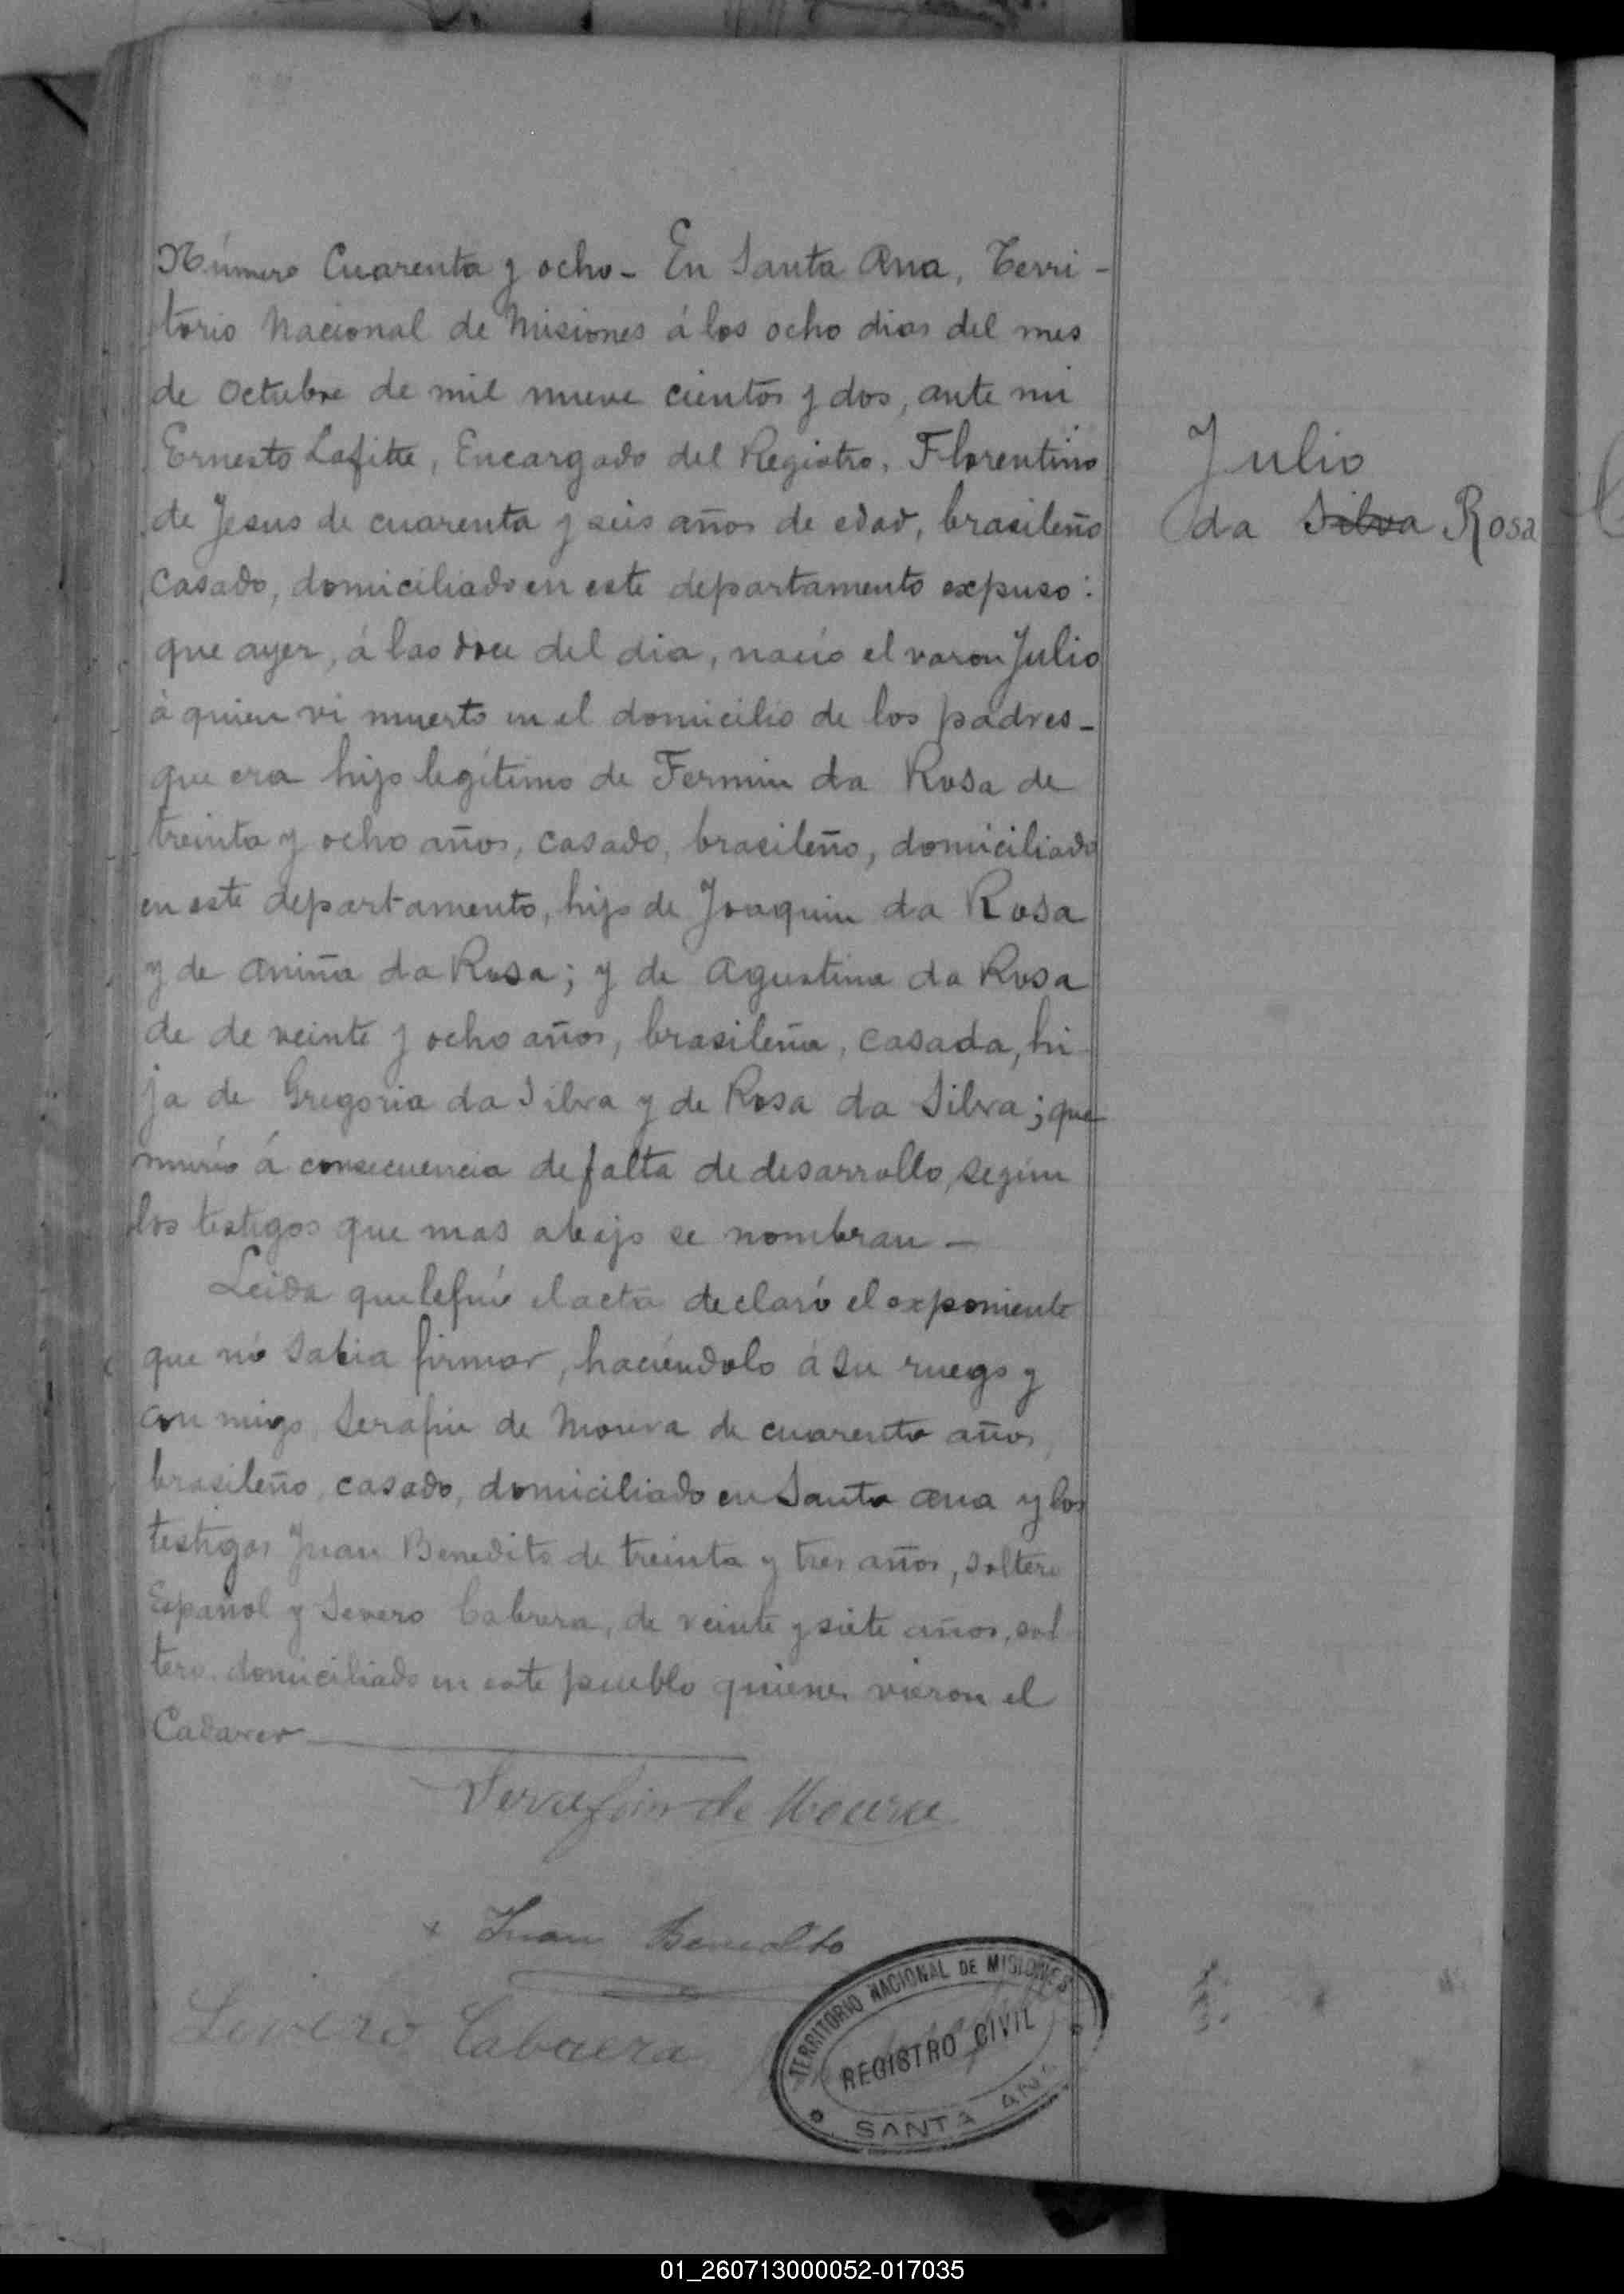 Número Cuarenta y ocho - En Santa Ana, Terri-
torio Nacional de Misiones á los ocho dias del mes
de Octubre de mil nueve cientos y dos, ante mi
Ernesto Lafitte, Encargado del Registro, Florentino
de Jesus de cuarenta y seis años de edad, brasileño
casado, domiciliado en este departamento expuso:
que ayer, á las doce del dia, nació el varon Julio
á quien vi muerto en el domicilio de los padres -
que era hijo legítimo de Fermin da Rosa de
treinta y ocho años, casado, brasileño, domiciliado
en este departamento, hijo de Joaquin da Rosa
y de Aniña da Rosa; y de Agustina da Rosa
de de veinte y ocho años, brasileña, casada, hi
ja de Gregoria da Silva y de Rosa da Silva; que
murió á consecuencia de falta de desarrollo, según
los testigos que mas abajo se nombran -
Leida que le fué el acta declaró el exponiente
que nó sabia firmar, haciéndolo á su ruego y
con migo Serafin de Moura de cuarenta años,
brasileño, casado, domiciliado en Santa Ana y los
testigos Juan Benedito de treinta y tres años, soltero
Español y Severo Cabrera, de veinte y siete años, sol
tero, domiciliado en este pueblo quienes vieron el
Cadaver
Julio
da Silva Rosa
Serafin de Moura
+ Juan Benedito
Severo Cabrera
TERRITORIO NACIONAL DE MISIONES
REGISTRO CIVIL
SANTA ANA
01_260713000052-017035